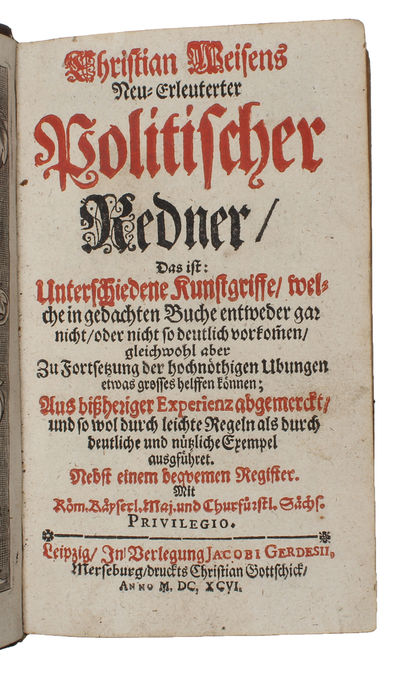 Christian Weisens
Neu-Erleuterter
Politischer
Redner/
Das ist:
Unterschiedene Kunstgriffe/ wel-
che in gedachten Buche entweder gar
nicht/ oder nicht so deutlich vorkom̃en/
gleichwohl aber
Zu Fortsetzung der hochnöthigen Ubungen
etwas grosses helffen können;
Aus bißheriger Experienz abgemerckt/
und so wol durch leichte Regeln als durch
deutliche und nützliche Exempel
ausgführet.
Nebst einem beqvemen Register.
Mit
Röm. Käyserl. Maj. und Churfürstl. Sächs.
PRIVILEGIO.
Leipzig/ In Verlegung JACOBI GERDESII,
Merseburg/ druckts Christian Gottschick/
ANNO M. DC, XCVI.